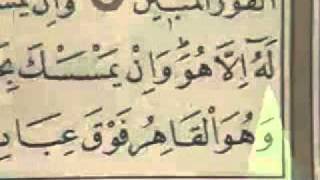 الفوز المبين وان يمس
له الا هو وان يمسسك بخ
وهو القاهر فوق عباد